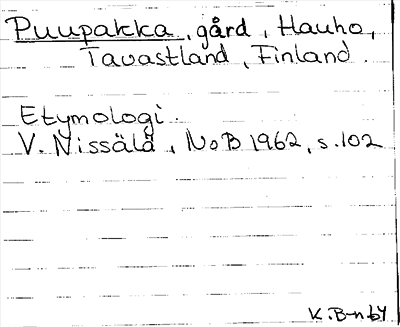 Puupakka, gård, Hauho,
Tavastland, Finland.
Etymologi.
V. Nissälä, NoB 1962, s. 102
K. B-n-by